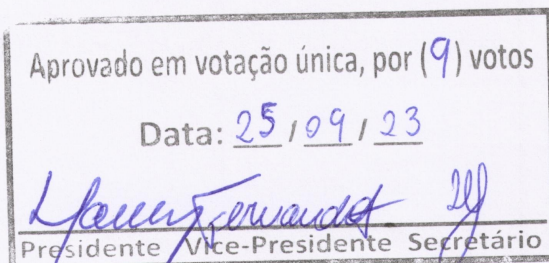 Aprovado em votação única, por (9) votos
Data: 25 / 09 / 23
Presidente Vice-Presidente Secretário